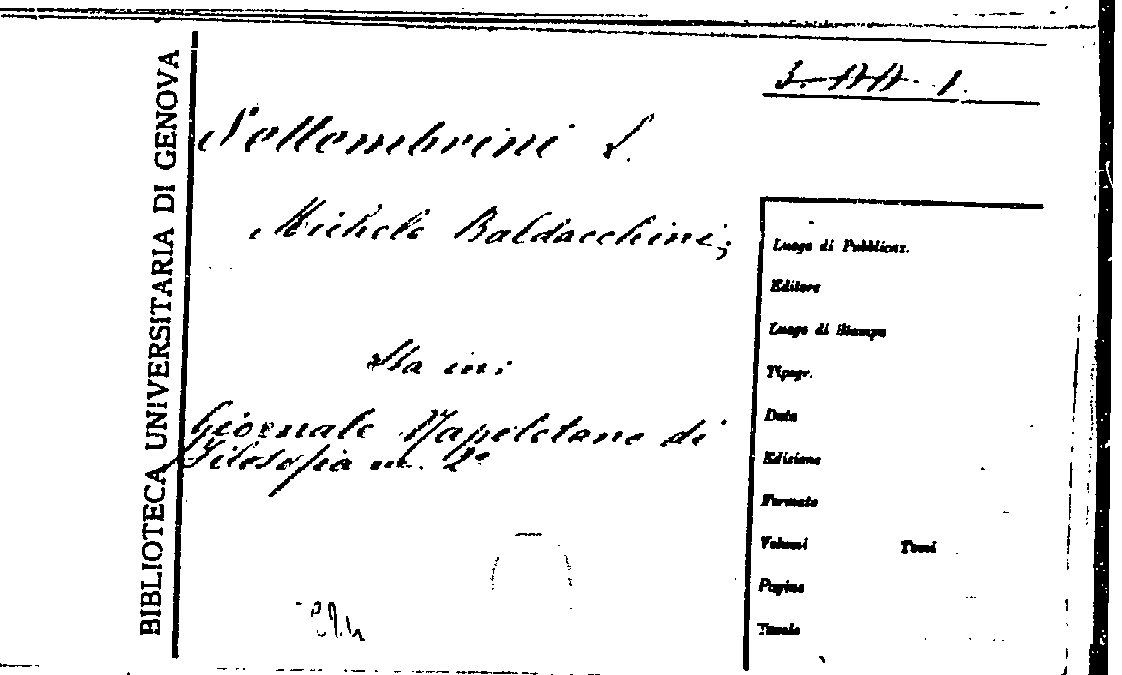 BIBLIOTECA UNIVERSITARIA DI GENOVA
3. AA. 1.
Settembrini L.
Michele Baldacchini;
Sta in:
Giornale Napoletano di
Filosofia
Luogo di Pubblicaz.
Editore
Luogo di Stampa
Tipogr.
Data
Edizione
Formato
Volumi Tomi
Pagine
Tavole